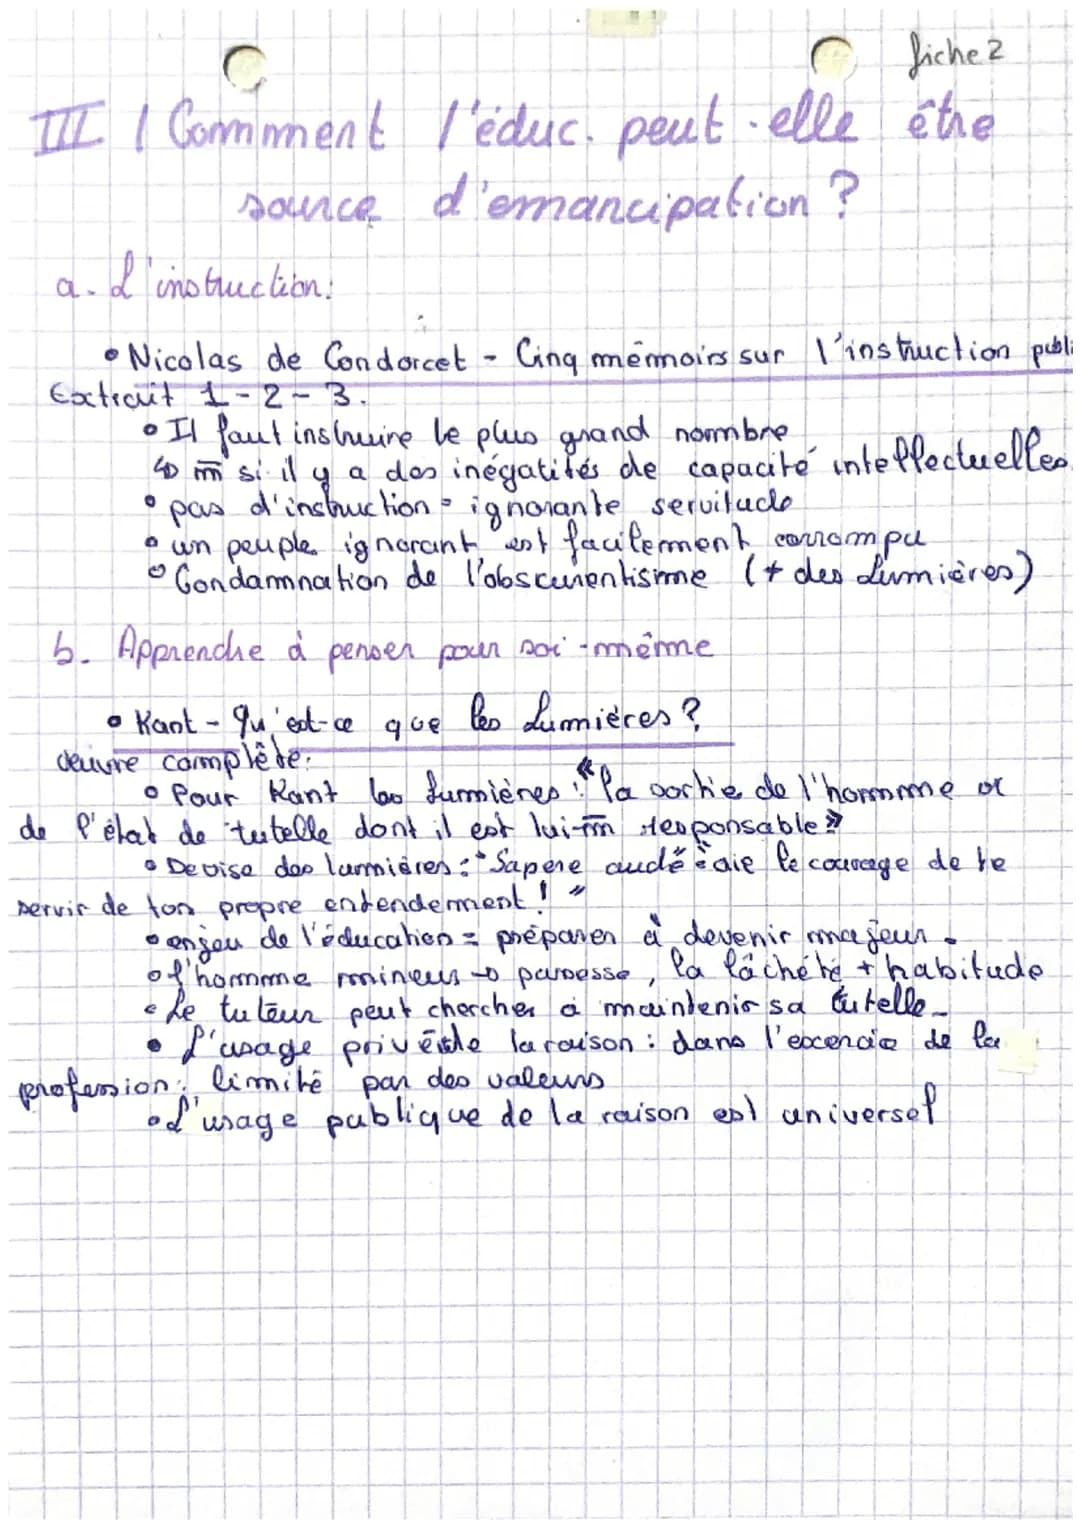 fiche 2
III / Comment l'éduc. peut-elle être
source d'emancipation ?
a. L'instruction:
• Nicolas de Condorcet - Cinq mémoirs sur l'instruction publi
Extrait 1-2-3.
• Il faut instruire le plus grand nombre
↳ m̄ si il y a des inégatités de capacité intellectuelles.
• pas d'instruction = ignorante servitude
• un peuple ignorant est facilement corrompu
• Condamnation de l'obscurentisme (+ des Lumières)
b. Apprendre à penser pour soi-même
• Kant - Qu'est-ce que les Lumières ?
œuvre complète:
• Pour Kant les lumières : "la sortie de l'homme
de l'état de tutelle dont il est lui-m̄ responsable"
• Devise des lumières : "Sapere audé aie le courage de te
servir de ton propre entendement ! "
• enjeu de l'éducation = préparer à devenir majeur.
• l'homme mineur → paresse, la lâchété + habitude
• Le tuteur peut chercher à maintenir sa tutelle.
• L'usage privé de la raison : dans l'exercice de la
profession : limité par des valeurs
• L'usage publique de la raison est universel